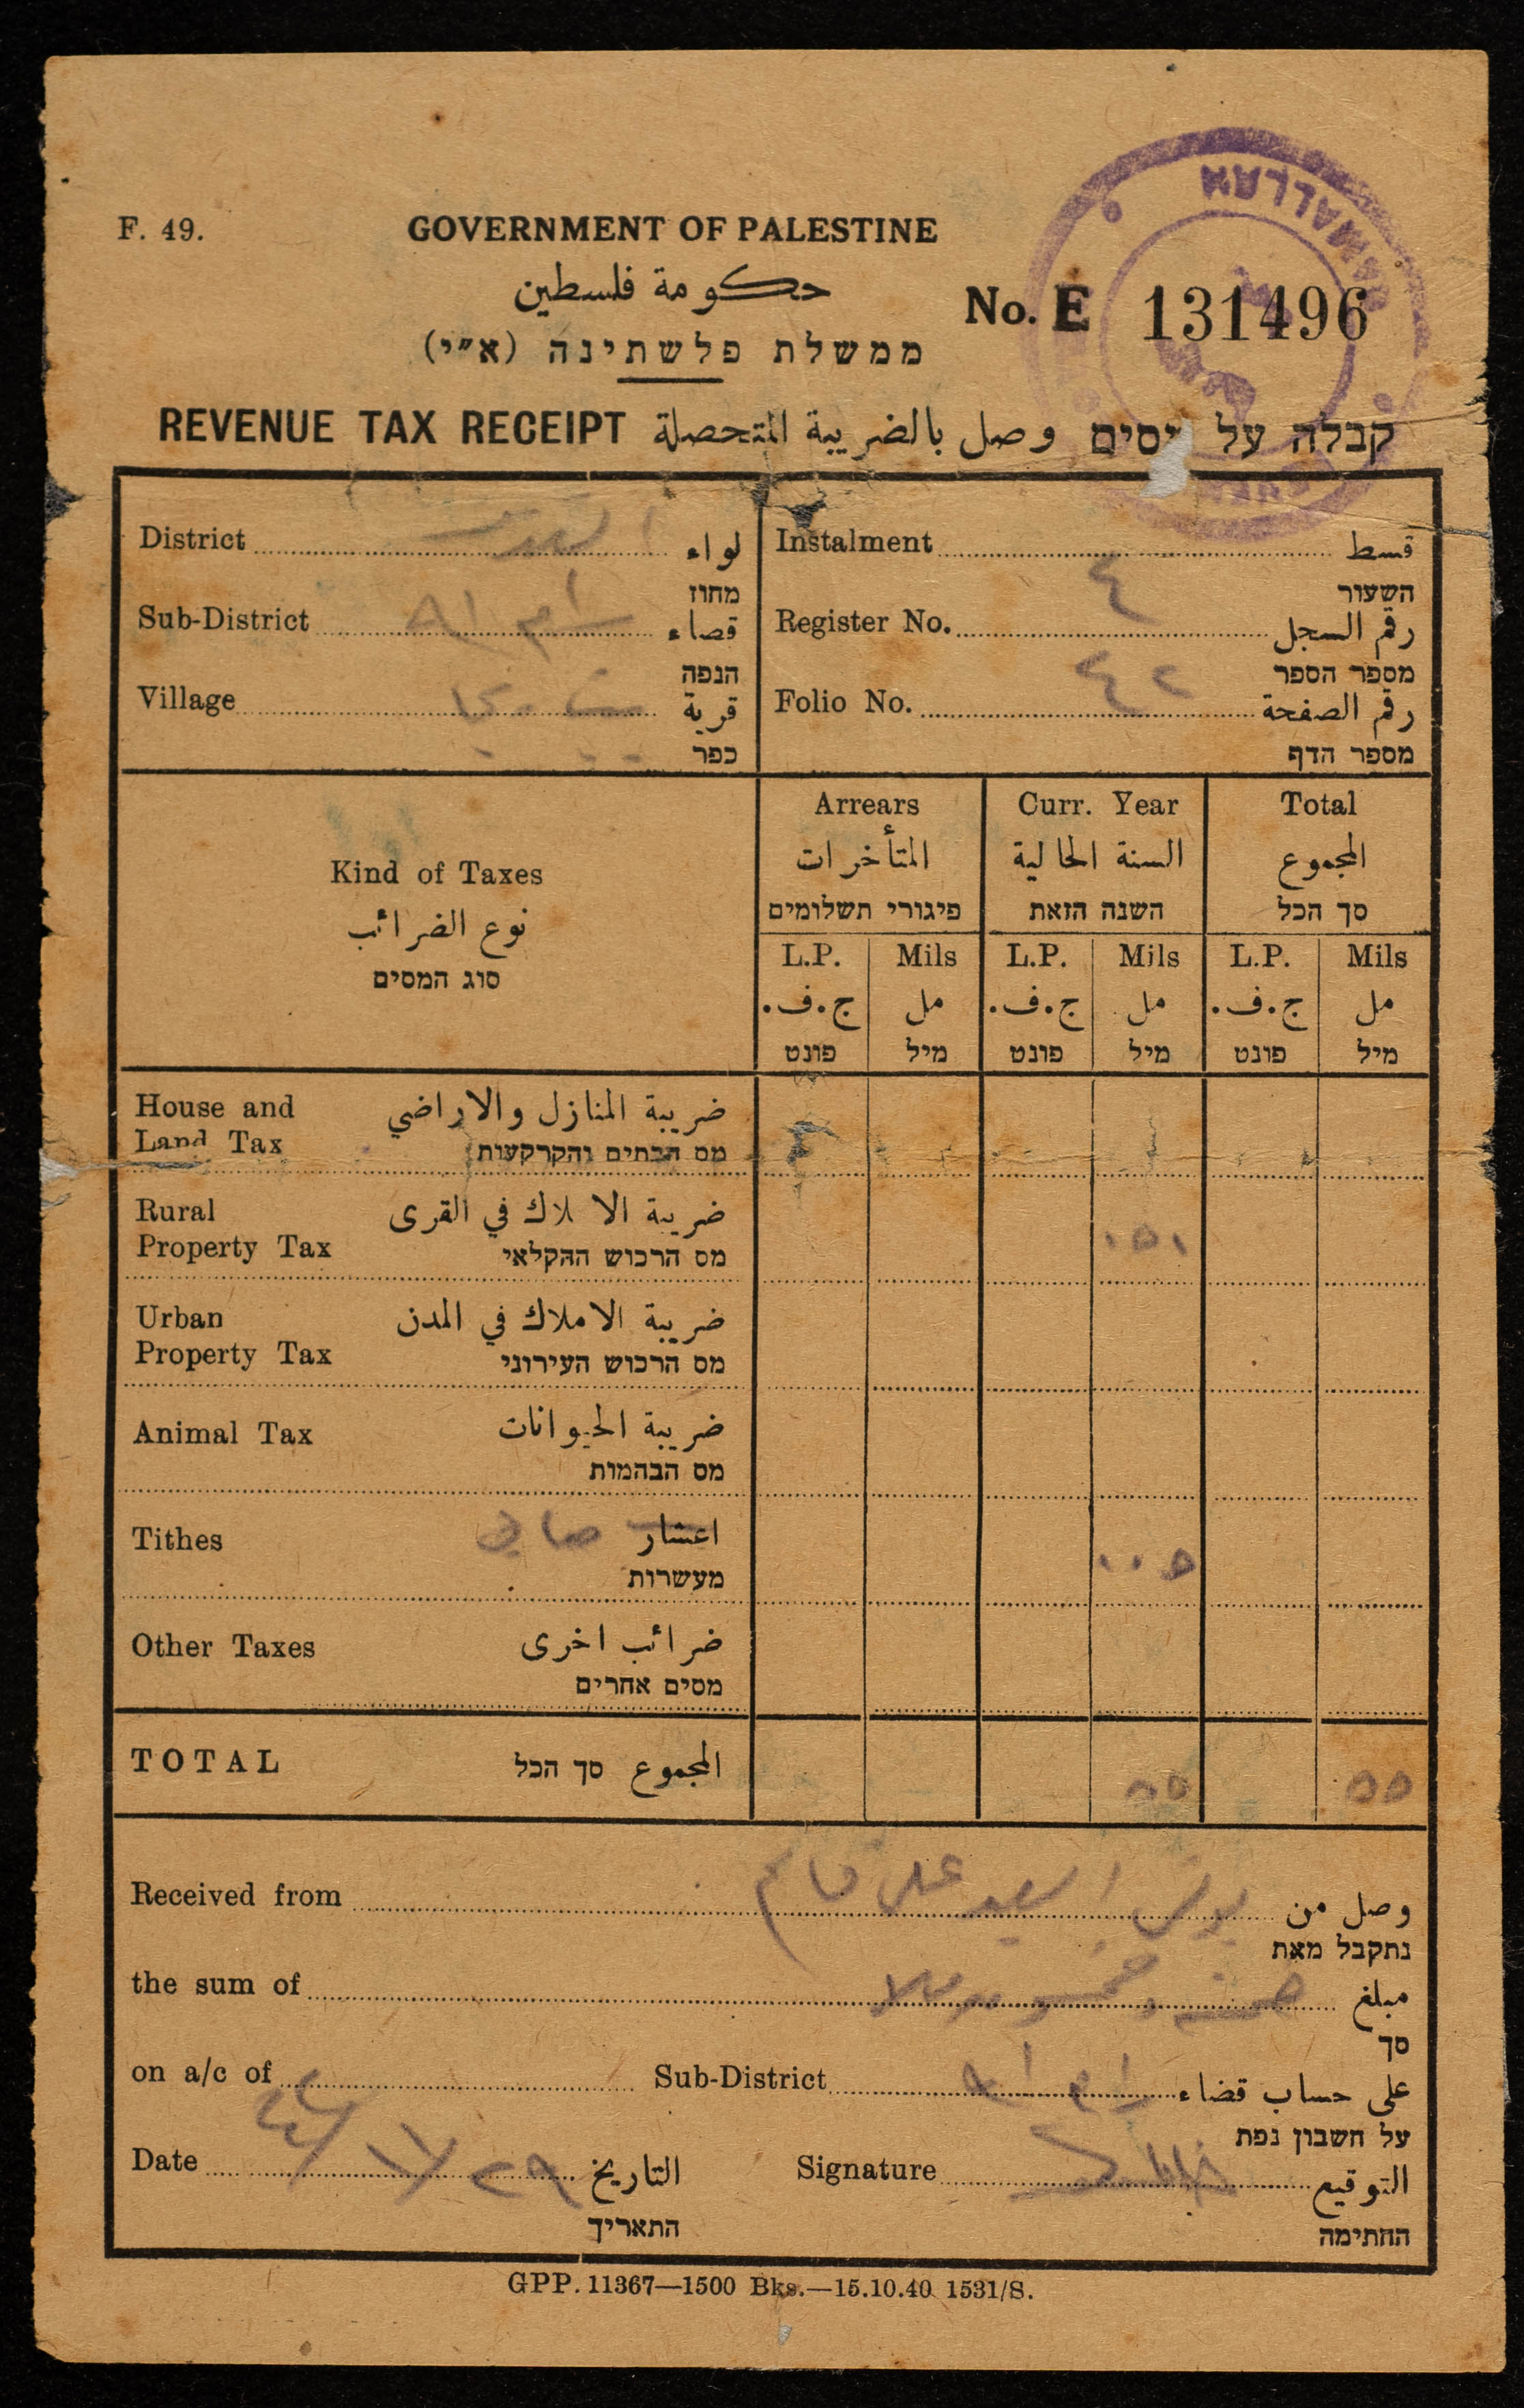 RAMALLAH
F. 49.
GOVERNMENT OF PALESTINE
حكومة فلسطين
ממשלת פלשתינה (א״י)
No. E 131496
REVENUE TAX RECEIPT وصل بالضريبة المتحصلة קבלה על יסים
District القدس لواء
מחוז
Sub-District رام الله قضاء
הנפה
Village قرية
כפר
Instalment قسط
השעור
Register No. ٤ رقم السجل
מספר הספר
Folio No. ٤٢ رقم الصفحة
מספר הדף
Kind of Taxes
نوع الضرائب
סוג המסים
Arrears Curr. Year Total
المتأخرات السنة الحالية المجموع
פיגורי תשלומים השנה הזאת סך הכל
L.P. Mils L.P. Mils L.P. Mils
ج.ف. مل ج.ف. مل ج.ف. مل
פונט מיל פונט מיל פונט מיל
House and ضريبة المنازل والاراضي
Land Tax מס הבתים והקרקעות
Rural ضريبة الاملاك في القرى
Property Tax מס הרכוש החקלאי
Urban ضريبة الاملاك في المدن
Property Tax מס הרכוש העירוני
Animal Tax ضريبة الحيوانات
מס הבהמות
Tithes اعشار
מעשרות
٠٠٥
Other Taxes ضرائب اخرى
מסים אחרים
TOTAL المجموع סך הכל ٥٥
Received from وصل من
נתקבל מאת
the sum of مبلغ
סך
on a/c of Sub-District رام الله على حساب قضاء
על חשבון נפת
Date التاريخ Signature التوقيع
התאריך החתימה
GPP. 11367—1500 Bks.—15.10.40 1531/S.